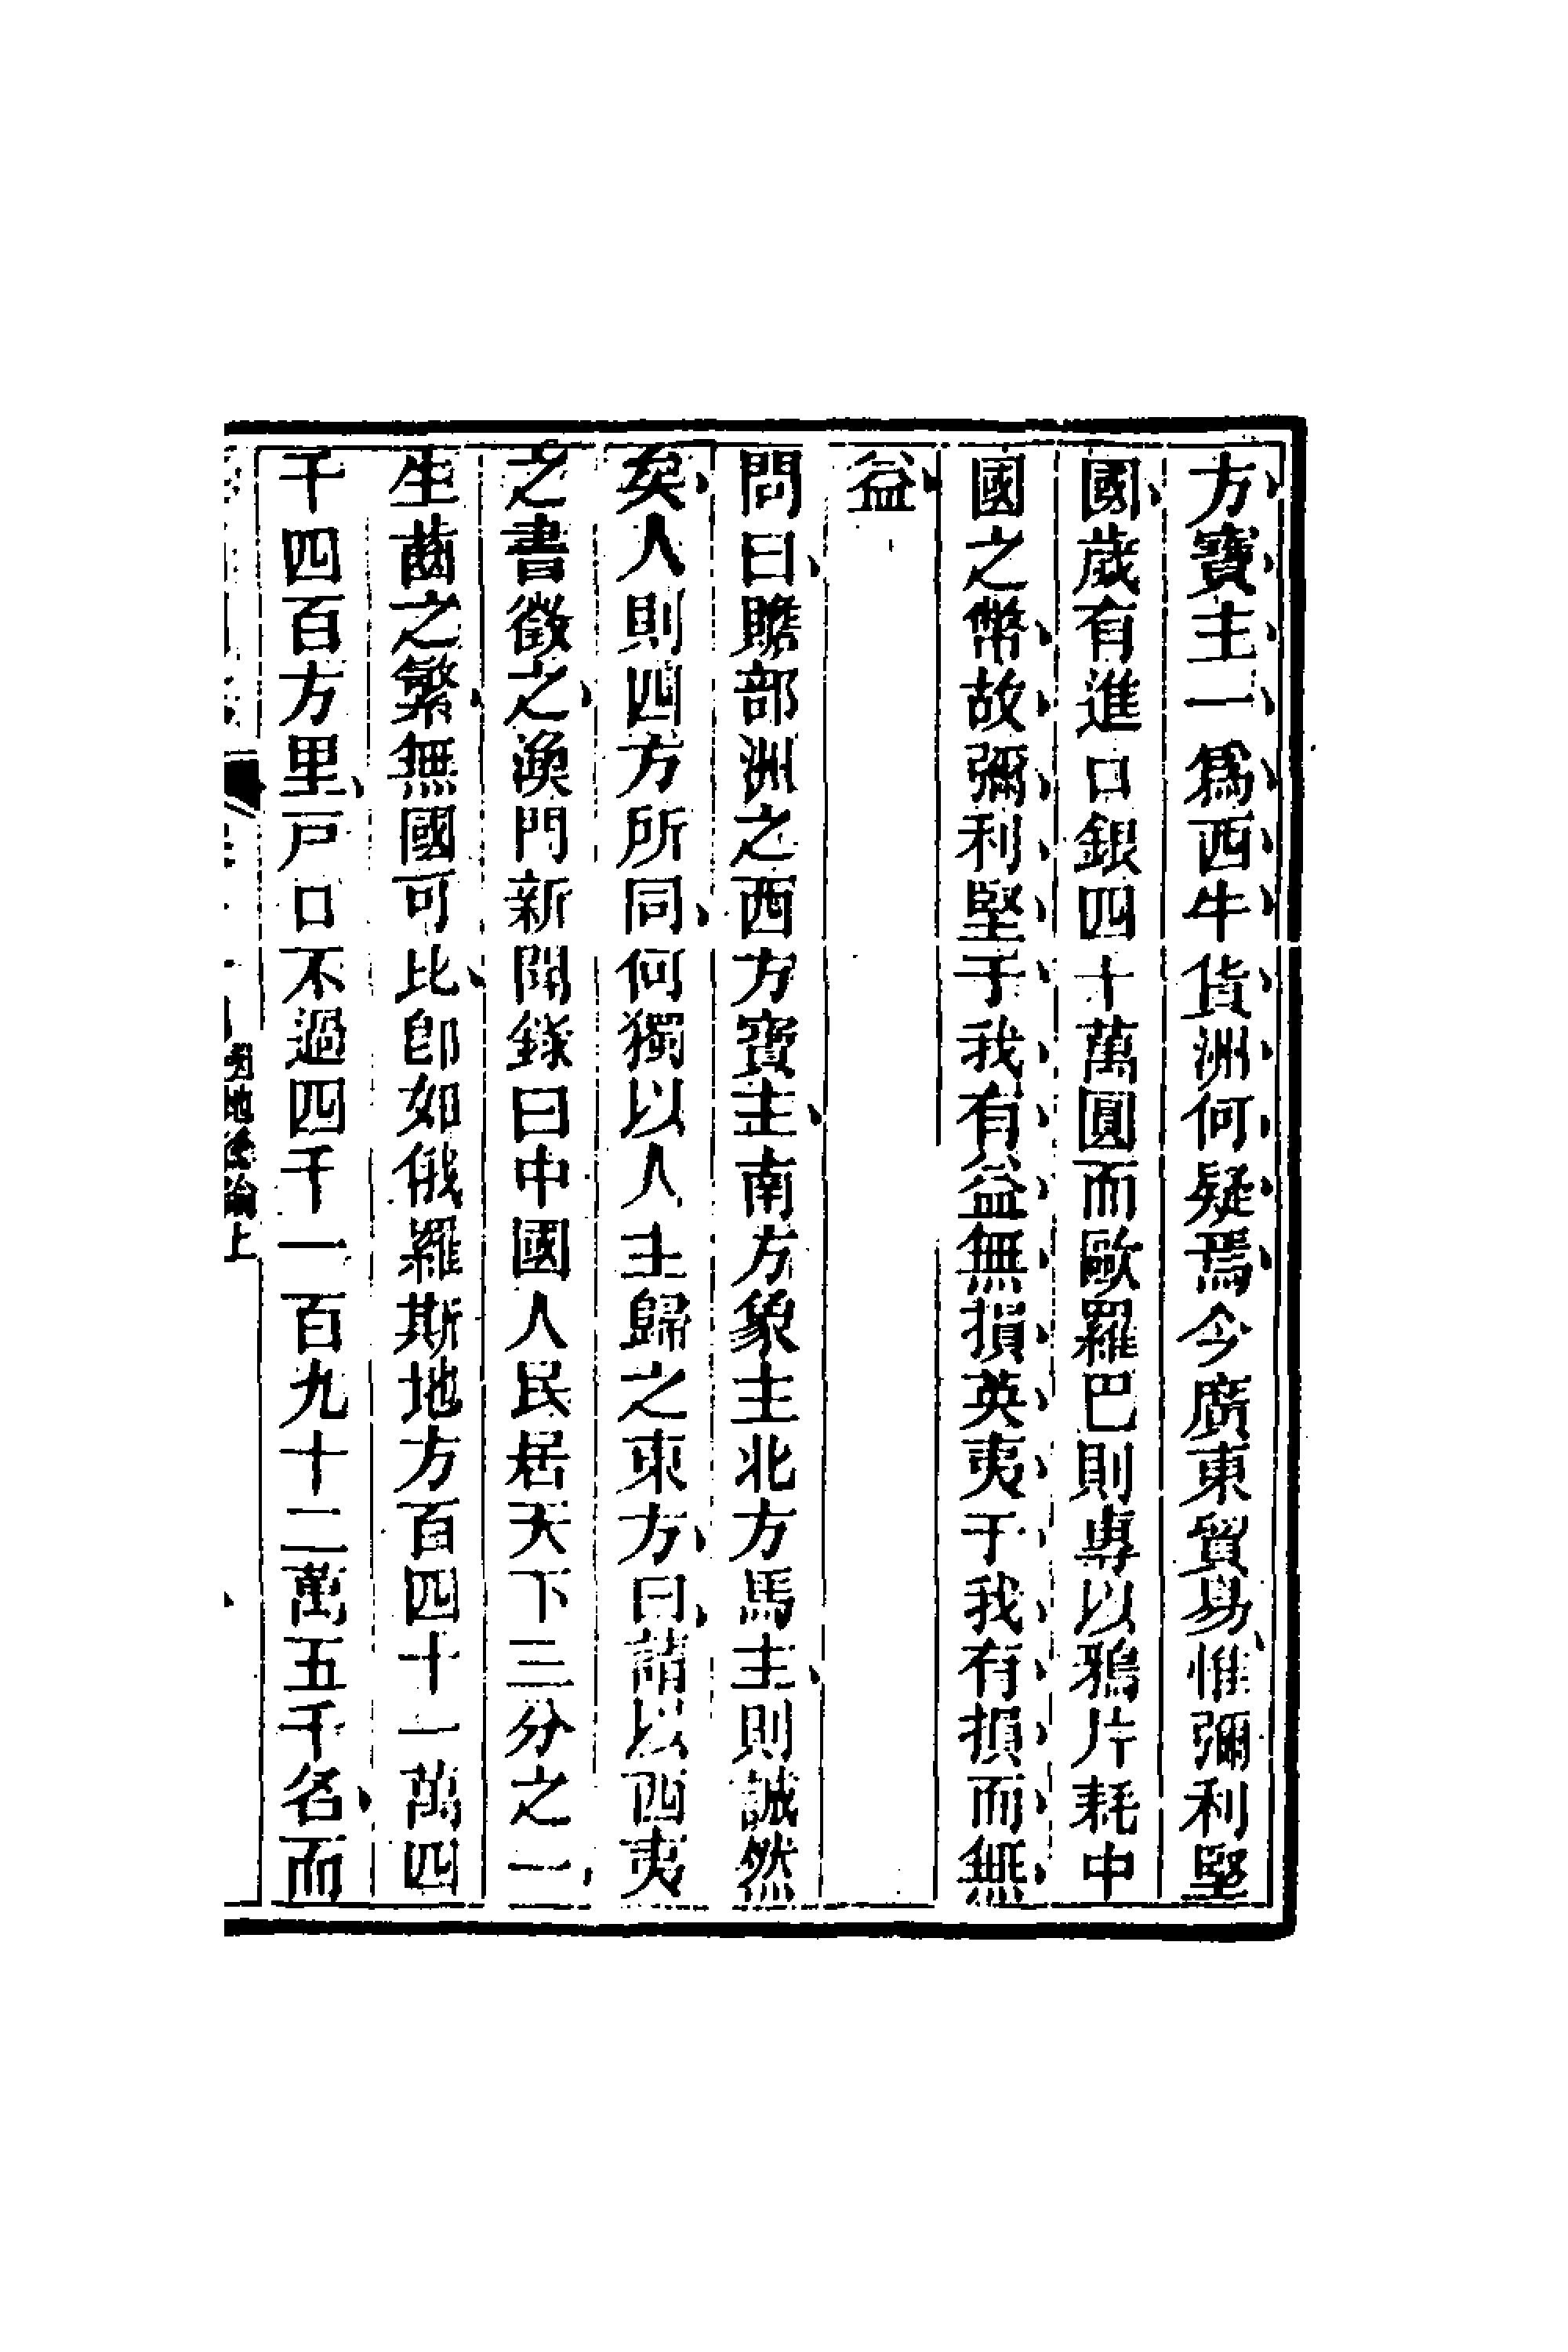 方寶主一爲西牛貨洲何疑焉今廣東貿易惟彌利堅
國歲有進口銀四十萬圓而歐羅巴則專以鴉片耗中
國之幣故彌利堅于我有益無損英夷于我有損而無
益
問曰贍部洲之西方寶主南方象主北方馬主則誠然
矣人則四方所同何獨以人主歸之東方曰請以西夷
之書徵之澳門新聞錄曰中國人民居天下三分之一
生齒之繁無國可比卽如俄羅斯地方百四十一萬四
千四百方里戸口不過四千一百九十二萬五千名而
地後論上